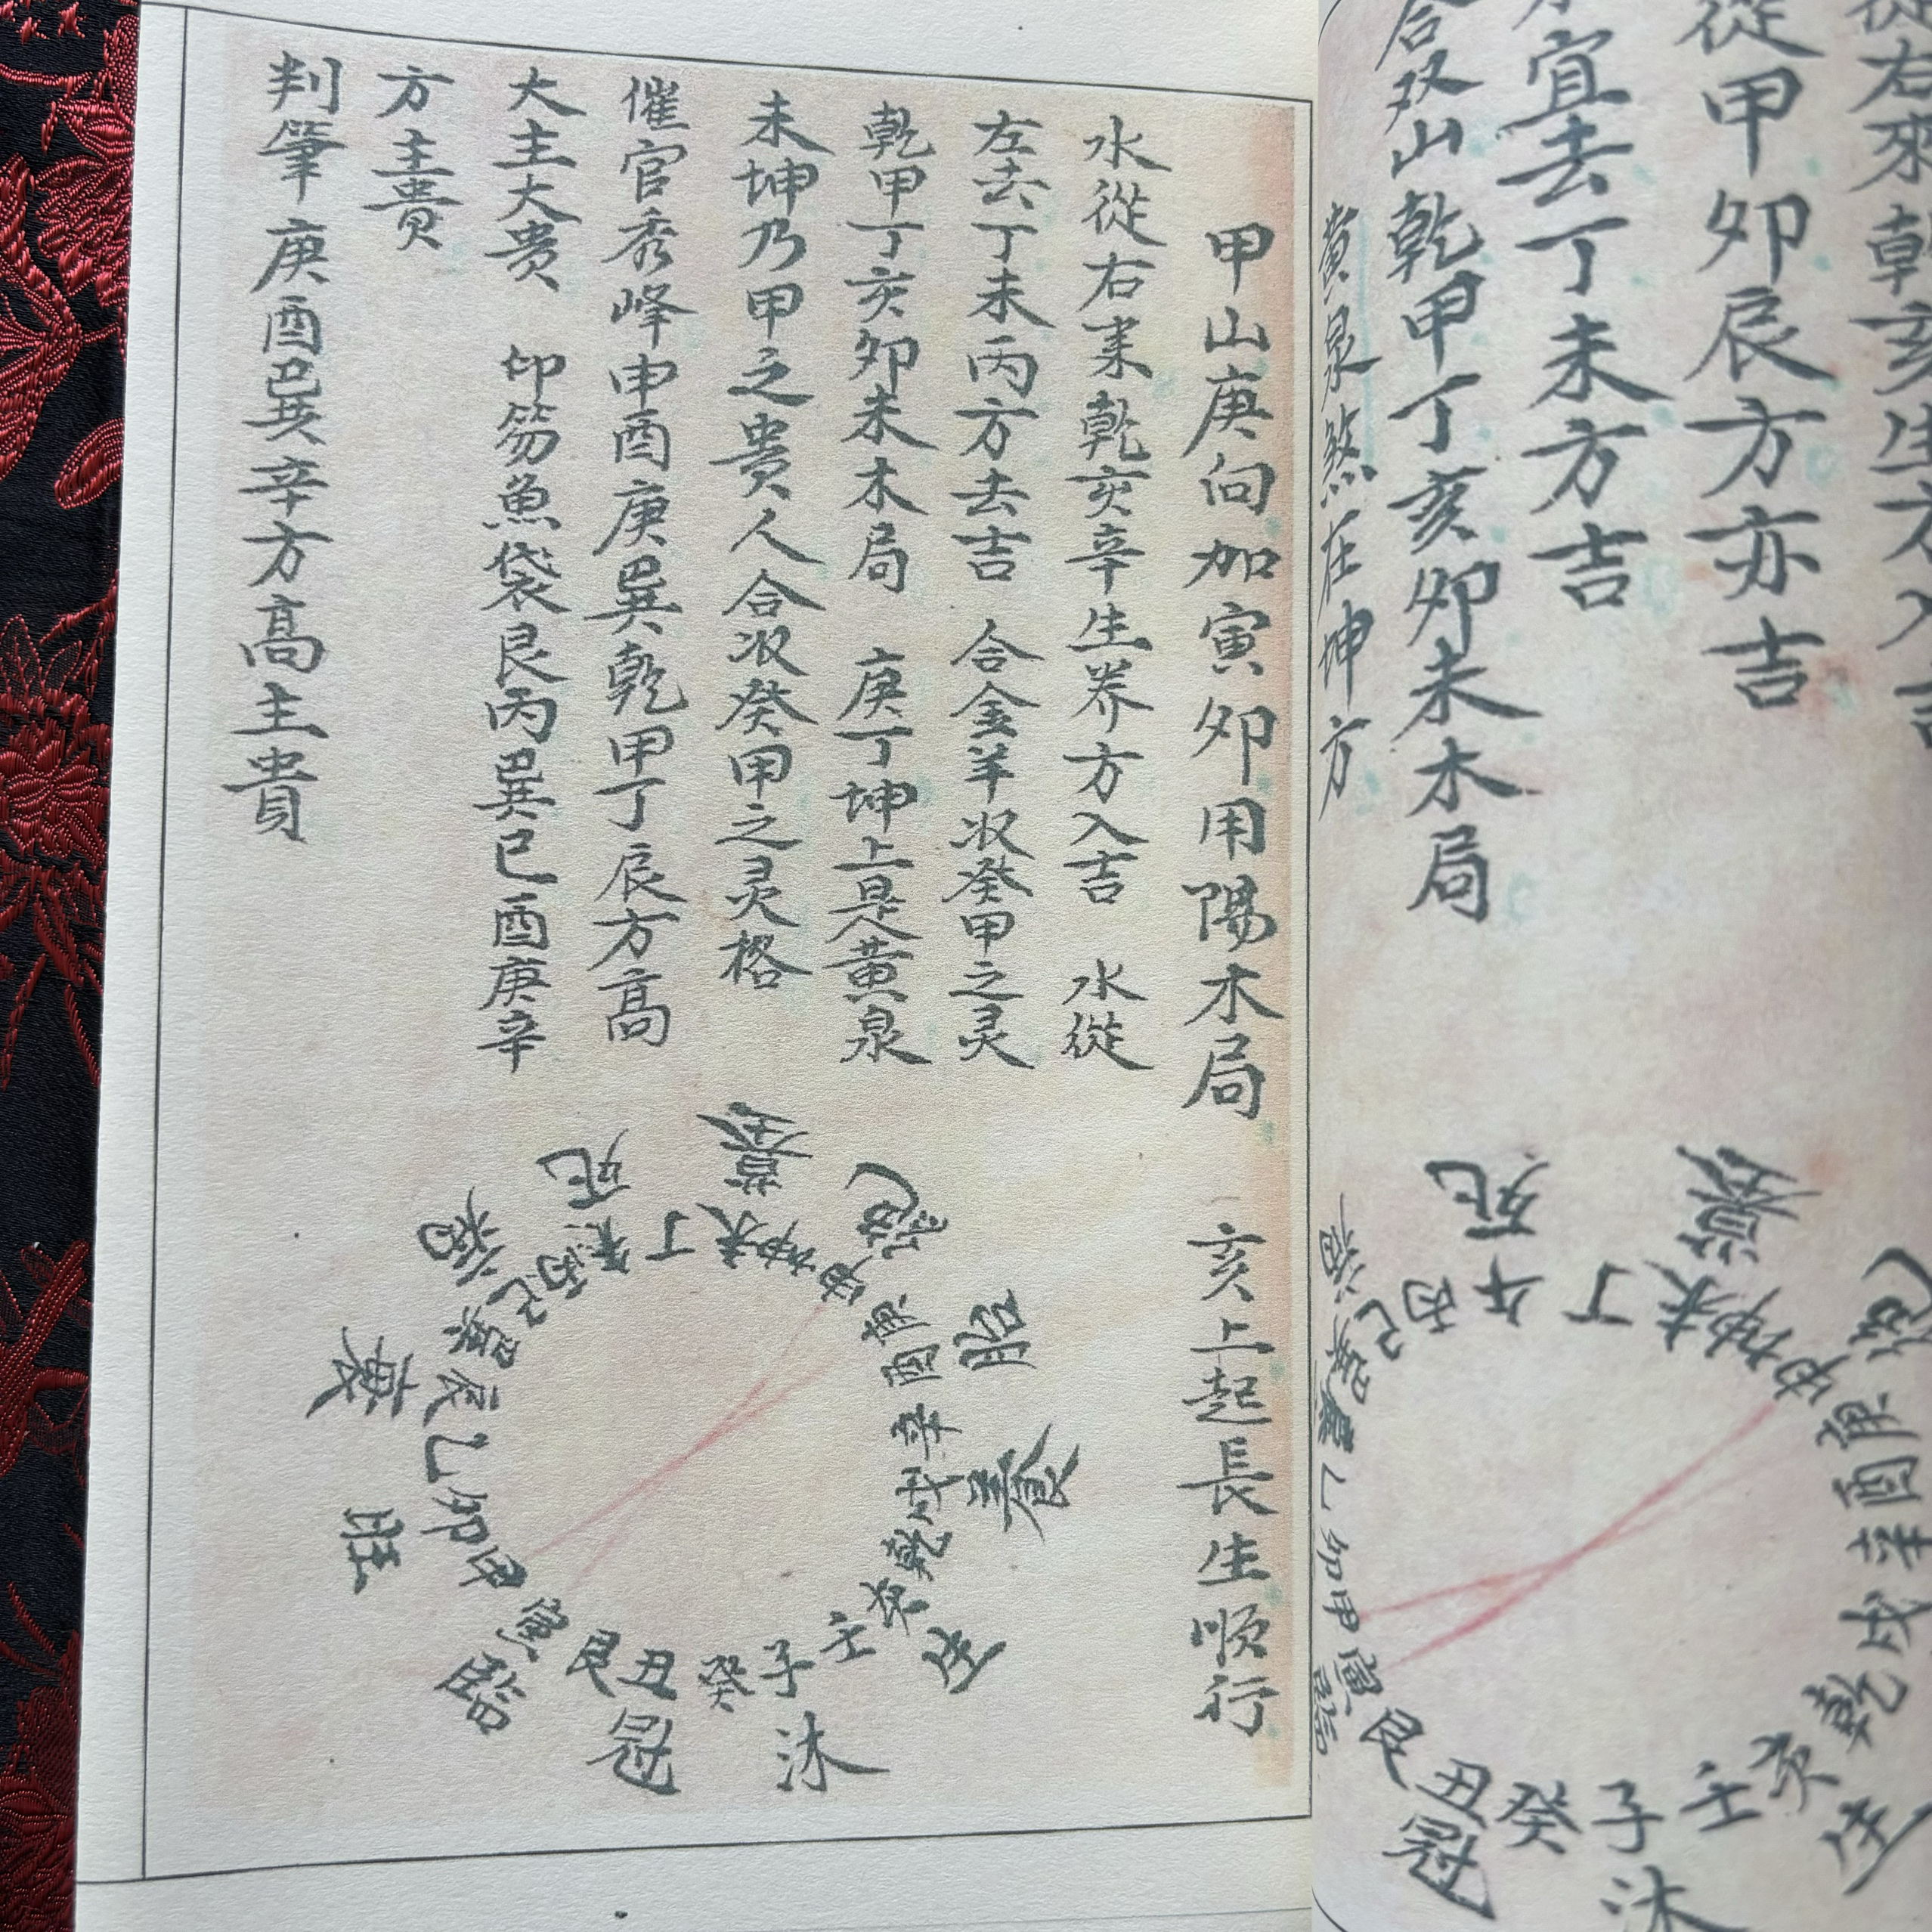 從右來乾亥生方入吉
從甲卯辰方亦吉
宜去丁未方吉
合双山乾甲丁亥卯未木局
黄泉煞在坤方
死
墓
丙
午
丁
未
坤
申
庚
酉
辛
戌
乾
亥
生
壬
子
沐
癸
丑
冠
艮
寅
甲
卯
甲山庚向加寅卯用陽木局 亥上起長生順行
水從右来乾亥辛生养方入吉 水從
左去丁未丙方去吉 合金羊收癸甲之灵
乾甲丁亥卯未木局 庚丁坤上是黄泉
未坤乃甲之貴人合收癸甲之灵格
催官秀峰申酉庚巽乾甲丁辰方高
大主大贵 印笏魚袋艮丙巽巳酉庚辛
方主貴
判筆庚酉巳巽辛方高主貴
墓
死
病
衰
旺
臨
冠
沐
生
養
胎
絕
未
坤
申
庚
酉
辛
戌
乾
亥
壬
子
癸
丑
艮
寅
甲
卯
乙
辰
巽
巳
丙
丁